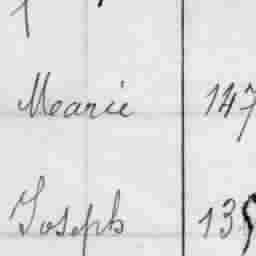 Mearie 147
Joseph 135